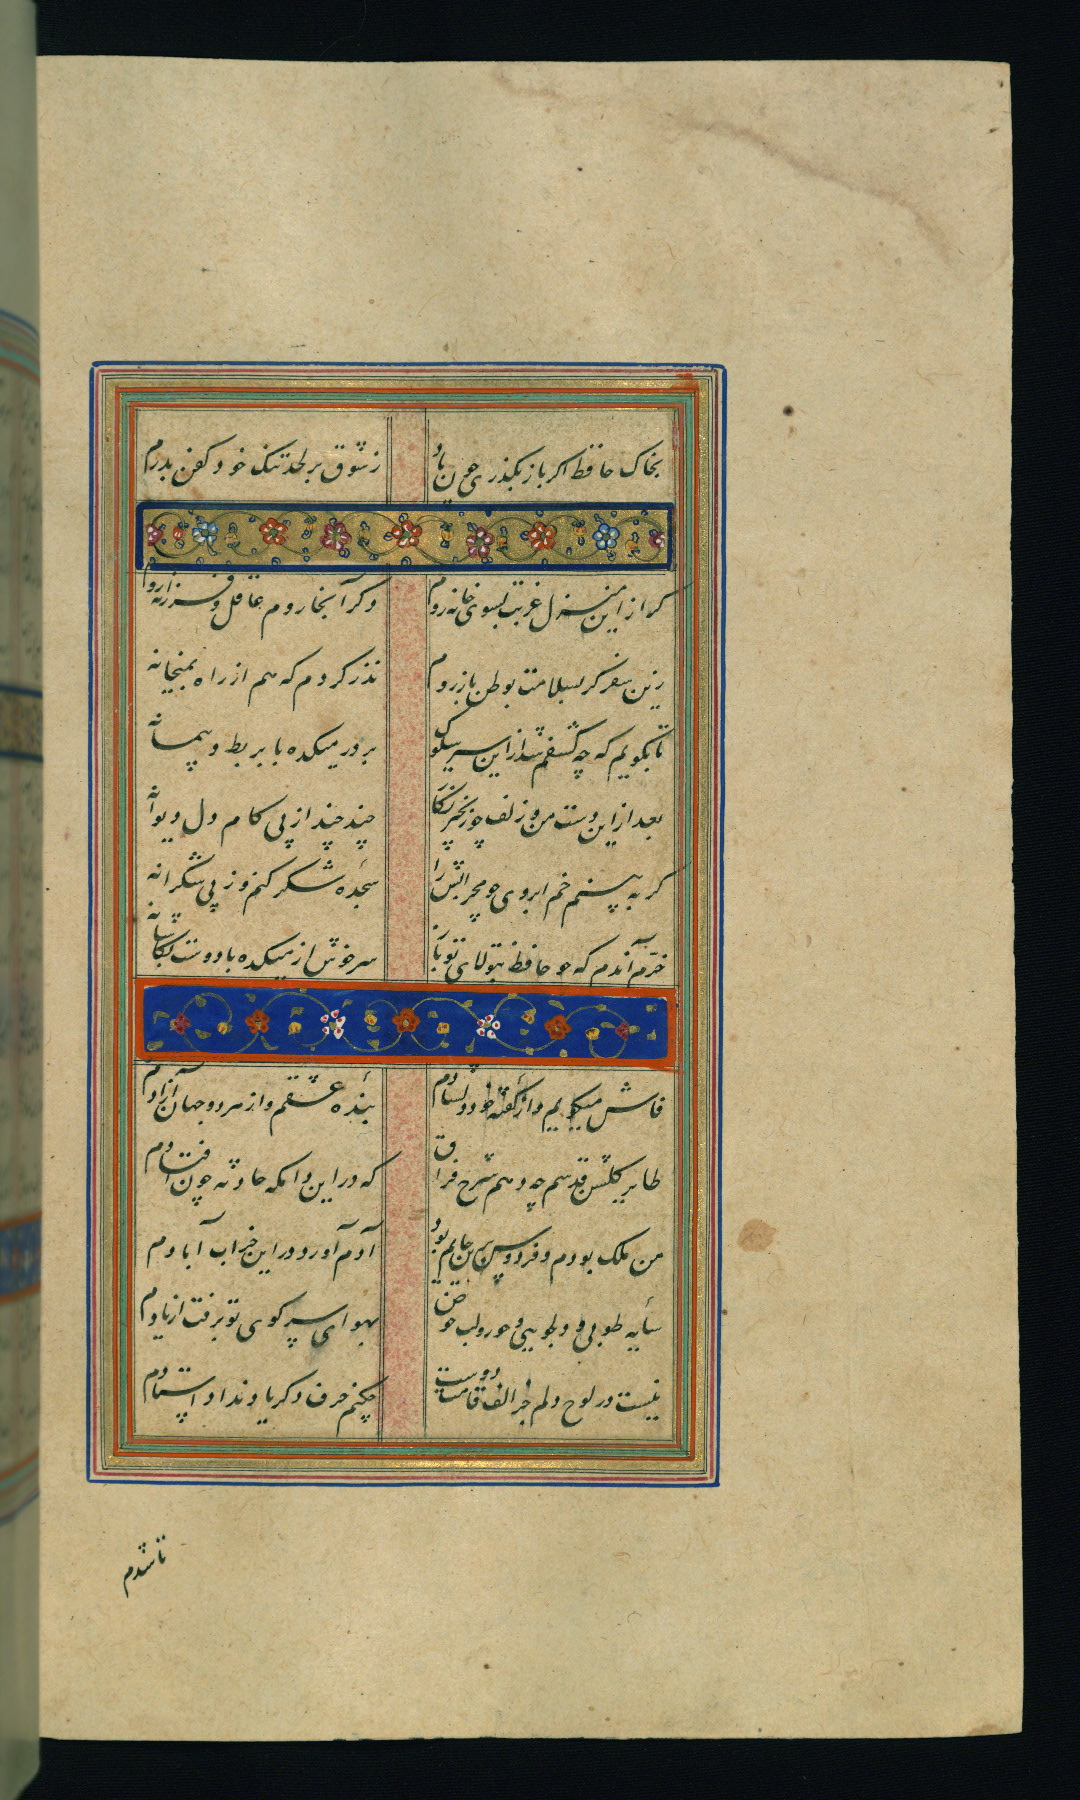 بخاک حافظ اکر باز بکذری چون باد ز شوق بر لحد تنک خود کفن بدرم
کر از این منزل غربت بسوی خانه روم و کر آنجا روم عاقل و فرزانه روم
زین سفر کر بسلامت بوطن باز روم نذر کردم که هم از راه بمیخانه
تا بکویم که چه کشفم شد از این سیر سلوک بر در میکده با بربط و پیمانه
بعد از این دست من و زلف چو زنجیر نکار چند چند از پی کام دل دیوانه
کر به بینم خم ابروی چو محرابش را سجده شکر کنم وز پی شکرانه
خرم آندم که چو حافظ بتولای تو باز سرخوش از میکده با دوست بکاشانه
فاش میکویم و از کفته خود دلشادم بنده عشقم و از هر دو جهان آزادم
طایر کلشن قدسم چه دهم شرح فراق که در این دامکه حادثه چون افتادم
من ملک بودم و فردوس برین جایم بود آدم آورد در این خراب آبادم
سایه طوبی و دلجویی و حور و لب حوض بهوای سر کوی تو برفت از یادم
نیست در لوح دلم جز الف قامت دوست چکنم حرف دکر یاد نداد استادم
تا شدم